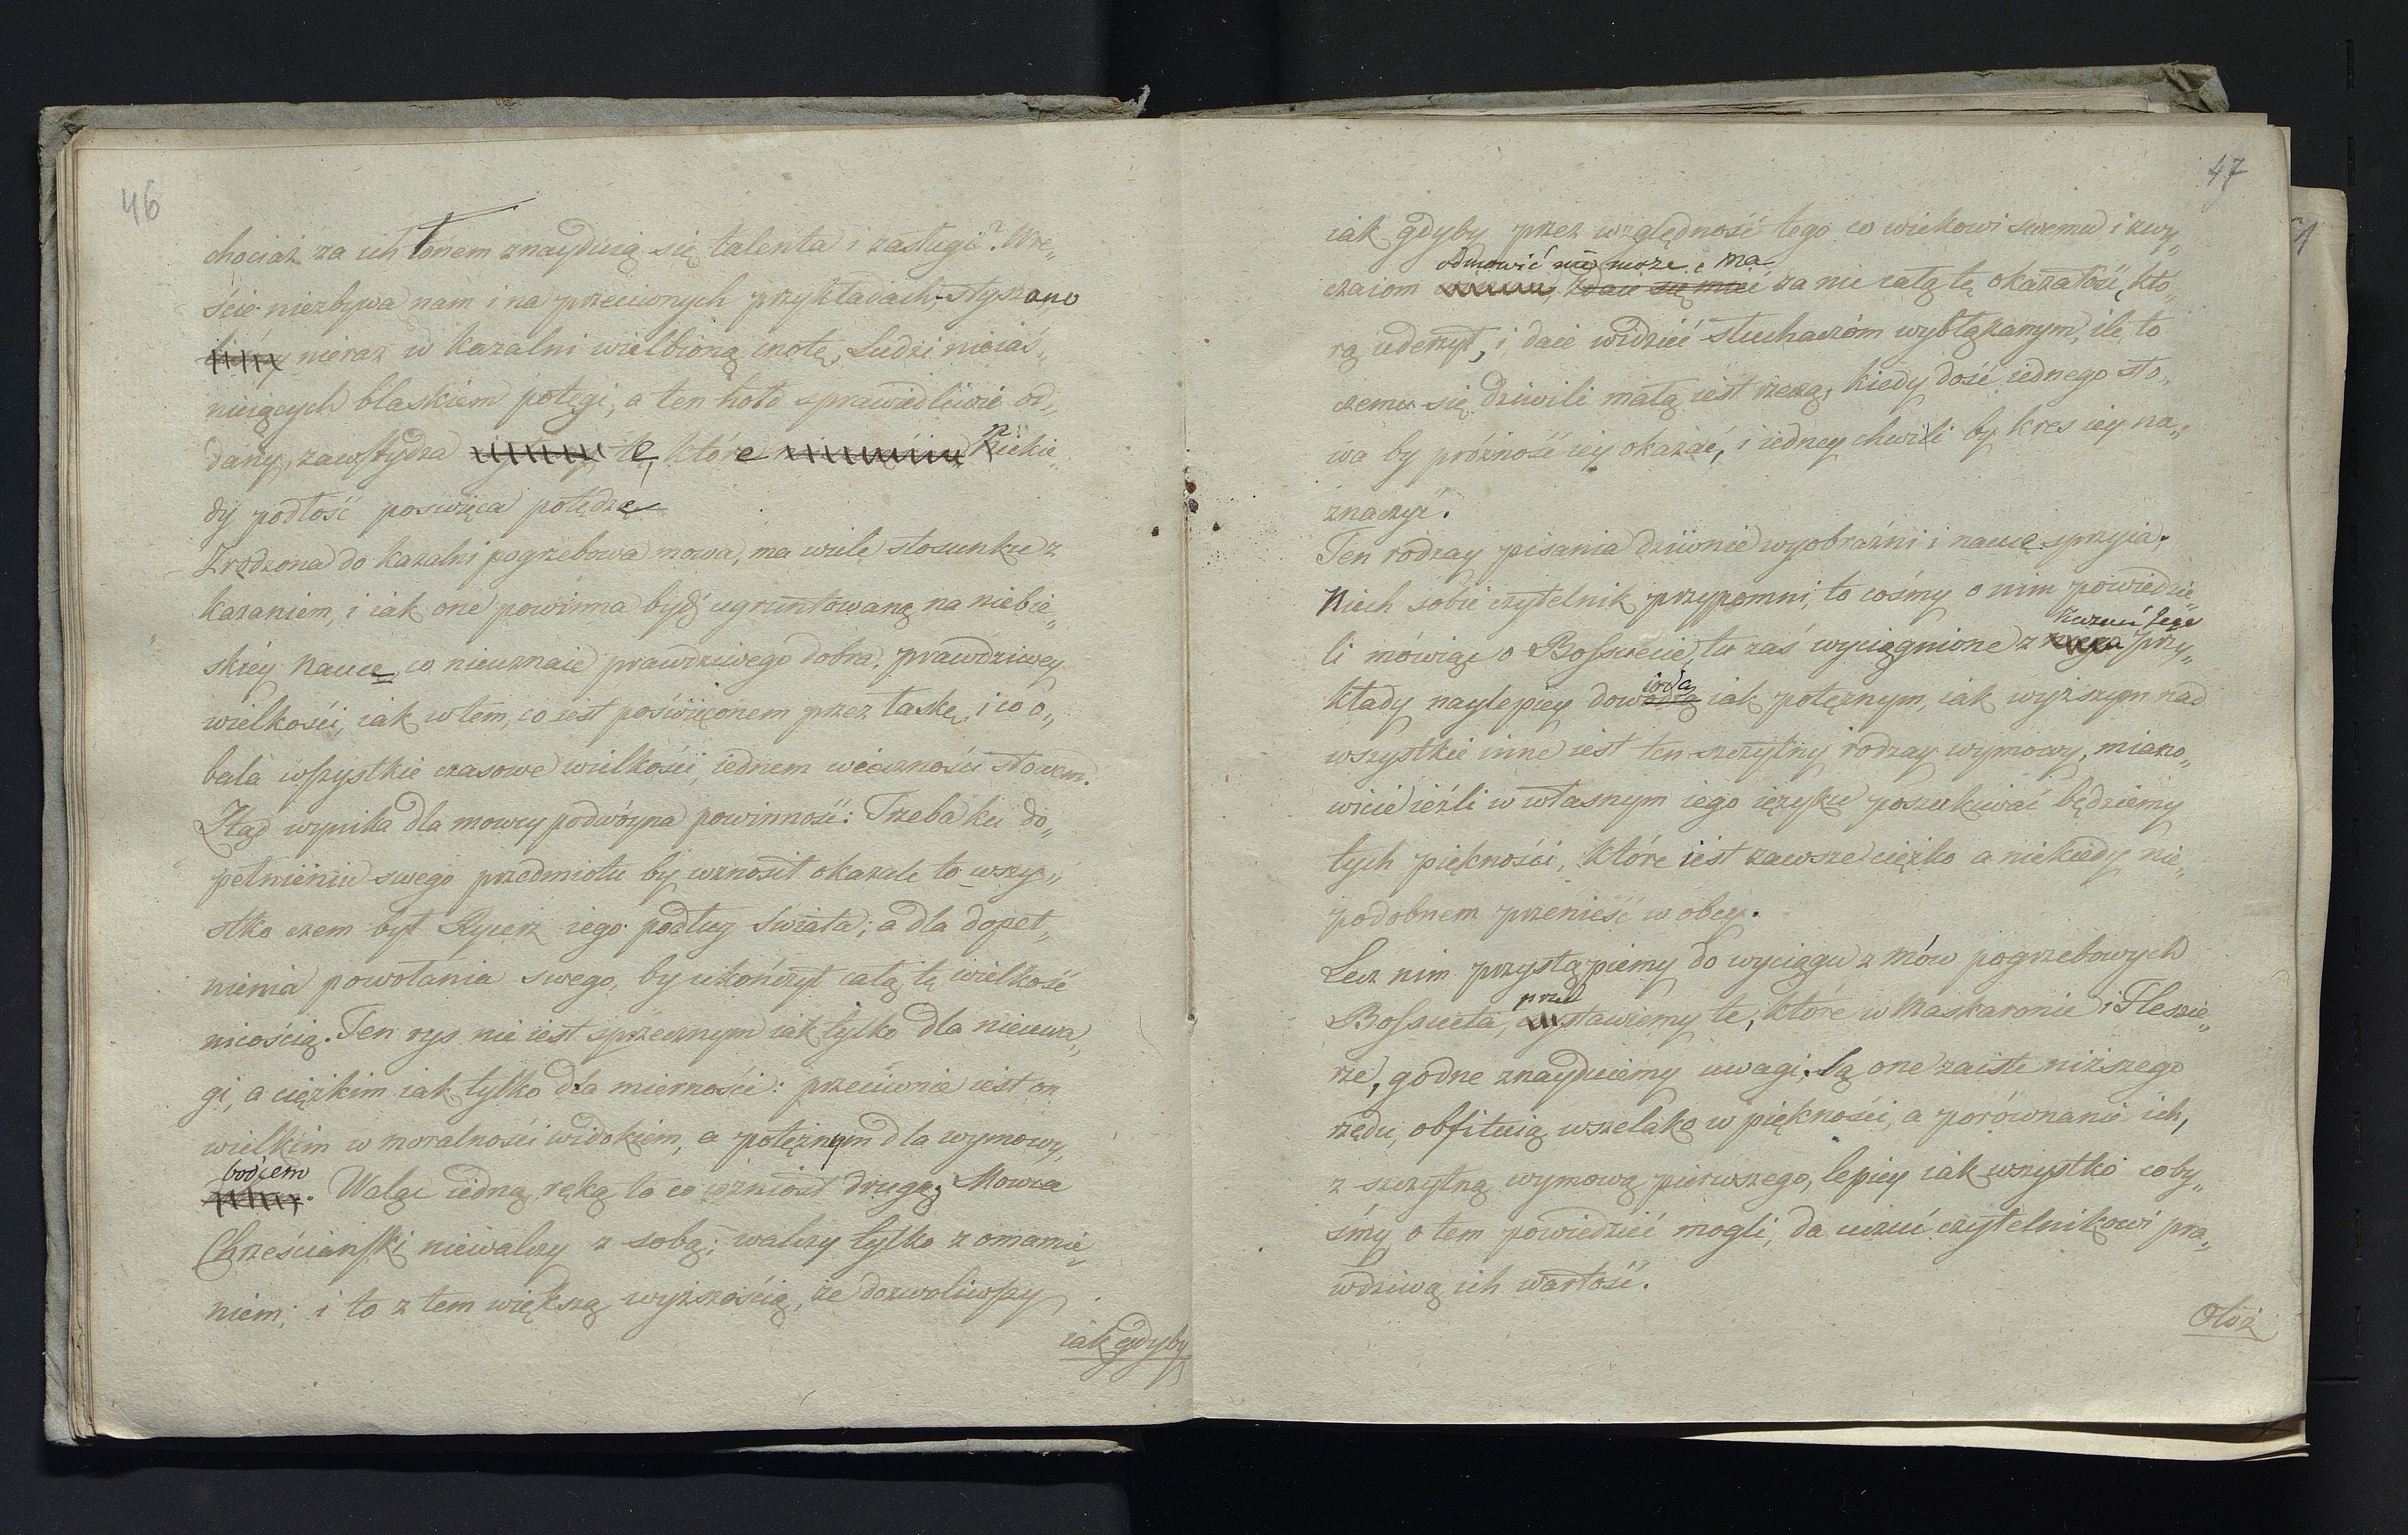 46
chociaż za ich Tonem znayduią się talenta i zasługi? Wre„
ście niezbywa nam i na przeciwnych przykładach; słyszano
nieraz w kazalni wielbioną cnotę, Ludzi nieiaś„
nieiących blaskiem potęgi, a ten hołd sprawiedliwie od„
dany, zawstydza te, które niekie„
dy podłość poswięca potędze
Zrodzona do kazalni pogrzebowa mowa, ma wiele stosunku z
kazaniem, i iak one powinna bydź ugruntowaną na niebie„
skiéy nauce, co nieuznaie prawdziwego dobra, prawdziwey
wielkości, iak w tem, co iest poświęconem przez łaskę, i co o„
bala wszystkie czasowe wielkości, iednem wieczności słowem.
Ztąd wynika dla mowcy podwóyna powinność: Trzeba ku do„
pełnieniu swego przedmiotu by wznosił okazale to wszy„
stko czem był Rycerz iego podług świata; a dla dopeł„
nienia powołania swego, by ukończył całą tę wielkość
nicością. Ten rys nie iest sprzecznym iak tylko dla nieuwa„
gi, a ciężkim iak tylko dla mierności: przeciwnie iest on
wielkim w moralności widokiem, a potężnym dla wymowy,
bodcem
. Waląc iedną ręką to co wzniosł drugą; Mowca
Chrześciański niewalczy z sobą; walczy tylko z omamie„
niem; i to z tem większą wyższością, że dozwoliwszy
iak gdyby
47
iak gdyby przez względność tego co wiekowi swemu i zwy„
odmowić nie może, ma
czaiom zdaie się mieć za nic całą tę okazałość, któ„
rą uderzył, i daie widzieć słuchaczóm wybłąkanym, ile to
czemu się dziwili małą iest rzeczą, kiedy dość iednego sło„
wa by próżność iey okazać, i iedney chwili by kres iey na„
znaczyć.
Ten rodzay pisania dziwnie wyobraźni i nauce sprzyia.
Niech sobie czytelnik przypomni, to cośmy o nim powiedzie„
li mówiąc o Bossuecie, tu zaś wyciągnione z przy„
kłady naylepiey dowiodą iak potężnym, iak wyższym nad
wszystkie inne iest ten szczytny rodzay wymowy, miano„
wicie ieźli w własnym iego ięzyku poszukiwać będziemy
tych piękności, które iest zawsze ciężko a niekiedy nie„
podobnem przenieść w obcy.
Lecz nim przystąpiemy do wyciągu z mów pogrzebowych
przed
Bossueta, wystawiemy te, które w Maskaronie i Fleszie„
rze, godne znaydziemy uwagi. Są one zaiste niższego
rzędu, obfituią wszelako w piękności, a porównanie ich,
z szczytną wymową pierwszego, lepiey iak wszystko coby„
śmy o tem powiedzieć mogli, da uczuć czytelnikowi pra„
wdziwą ich wartość.
Otóż